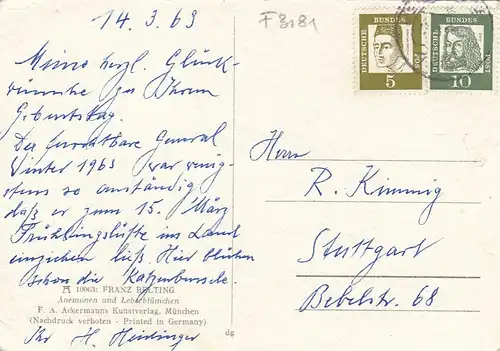 14.3.63
F 8181
Meine herzl. Glück-
wünsche zu Ihrem
Geburtstag.
Der furchtbare General
Winter 1963 war wenig-
stens so anständig
daß er zum 15. März
Frühlingslüfte ins Land
einziehen ließ. Hier blühen
schon die
H 10063: FRANZ BELTING
Anemonen und Leberblümchen
F. A. Ackermanns Kunstverlag, München
(Nachdruck verboten - Printed in Germany)
dg
Ihr H.
DEUTSCHE BUNDESPOST
5
DEUTSCHE BUNDESPOST
10
Herrn
R. Kimmig
Stuttgart
Bebelstr. 68